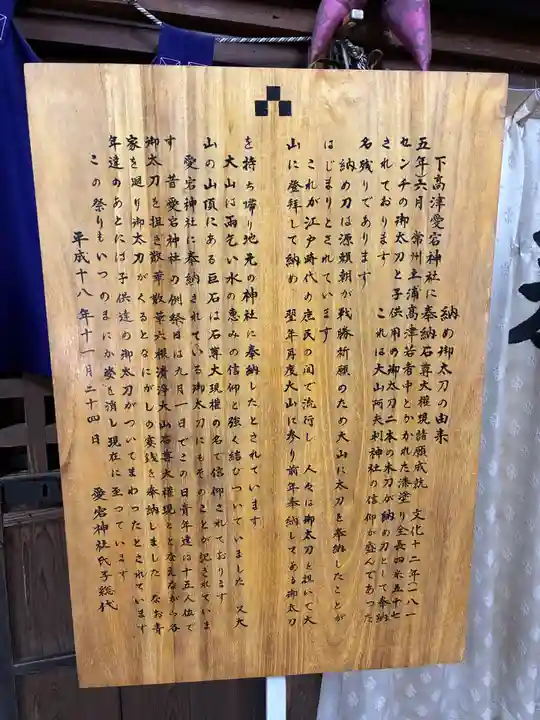 納め御太刀の由来
下高津愛宕神社に奉納石尊大権現諸願成就 文化十二年一八一
五年六月 常州土浦高津若者中とかかれた漆塗り全長四米五十七
センチの御太刀と子供用の御太刀二本の木刀が納め刀として奉納
されております これは大山阿夫利神社の信仰が盛んであった
名残りであります
納め刀は源頼朝が戦勝祈願のため大山に太刀を奉納したことが
はじまりとされています
これが江戸時代の庶民の間で流行し 人々は御太刀を担いで大
山に登拝して納め 翌年再度大山に参り前年奉納してある御太刀
を持ち帰り地元の神社に奉納したとされています
大山は雨乞い水の恵みの信仰と強く結びついていました 又大
山の山頂にある巨石は石尊大現権の名で信仰されております
愛宕神社に奉納されている御太刀にもそのことが記されていま
す 昔愛宕神社の例祭日は九月一日でこの日青年達は十五人位で
御太刀を担ぎ散華散華六根清浄大山石尊大権現ととなえながら各
家を廻り御太刀が入るとなにがしの賽銭を奉納しました なお青
年達のあとには子供達の御太刀がついてまわったとされています
この祭りもいつのまにか姿を消し現在に至っています
平成十八年十一月二十四日 愛宕神社氏子総代